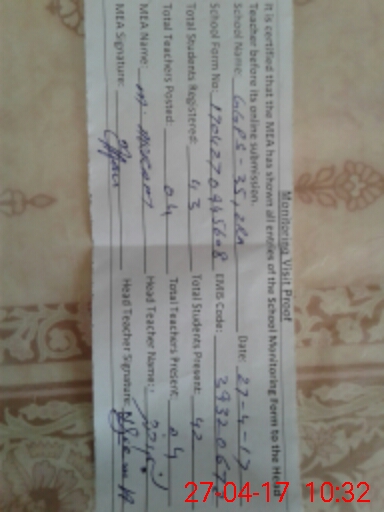 Monitoring Visit Proof
It is certified that the MEA has shown all entries of the School Monitoring Form to the Head
Teacher before its online submission.
School Name: GGPS - 35, 2RA Date: 27-4-17
School Form No: EMIS Code:
Total Students Registered: 43 Total Students Present: 42
Total Teachers Posted: 04 Total Teachers Present: 04
MEA Name: Head Teacher Name:
MEA Signature: Head Teacher Signature:
27-04-17 10:32